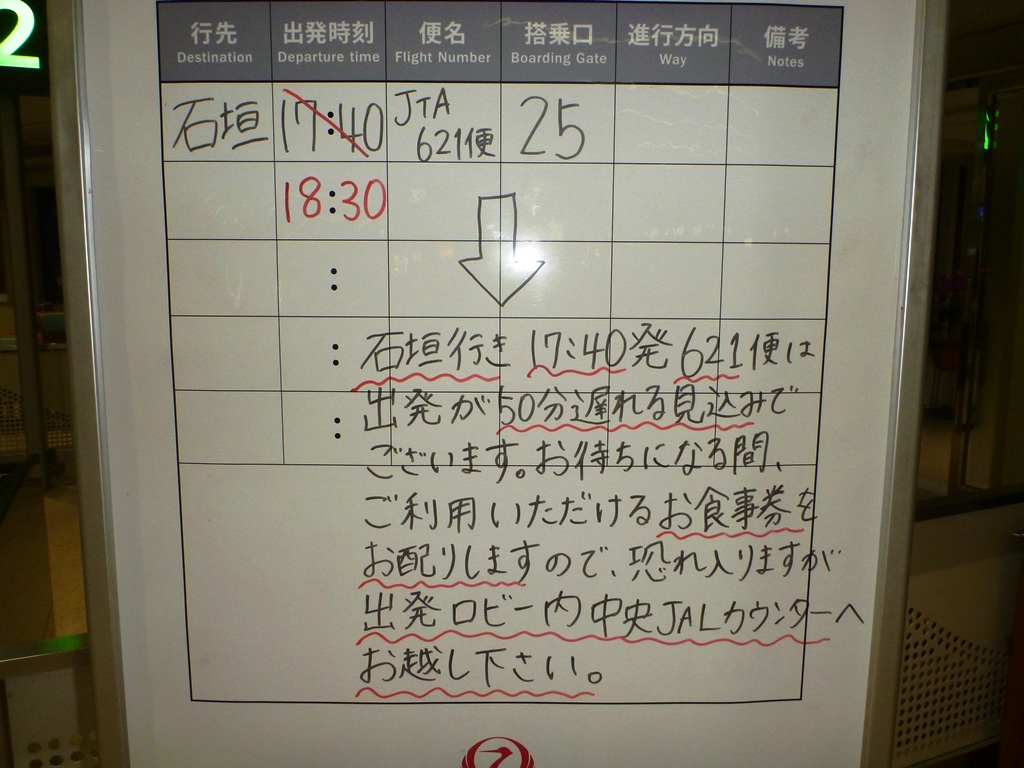 2
行先 出発時刻 便名 搭乗口 進行方向 備考
Destination Departure time Flight Number Boarding Gate Way Notes
石垣 17:40 JTA 621便 25
18:30
:
:
:
石垣行き 17:40発 621便は
出発が50分遅れる見込みで
ございます。お待ちになる間、
ご利用いただけるお食事券を
お配りしますので、恐れ入りますが
出発ロビー内中央JALカウンターへ
お越し下さい。